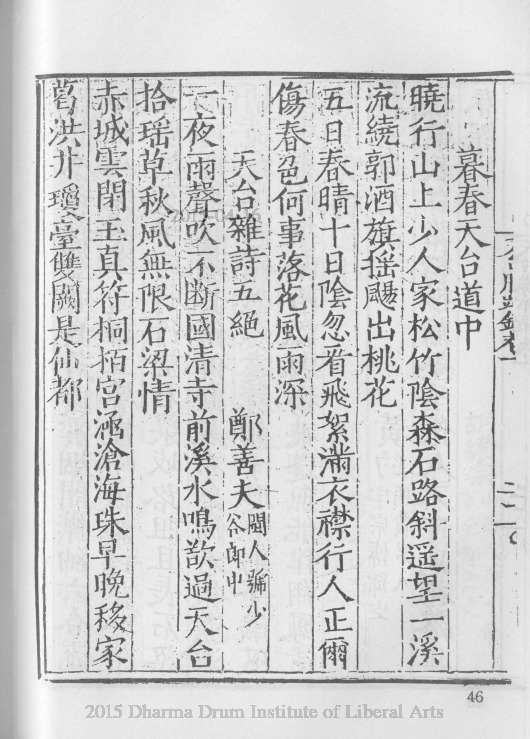 暮春天台道中
曉行山上少人家松竹陰森石路斜遥望一溪
流繞郭酒旗揺颺出桃花
五日春晴十日陰忽看飛絮滿衣襟行人正爾
傷春色何事落花風雨深
天台雜詩五絶
鄭善夫閩人號少
谷郎中
一夜雨聲吹不斷國清寺前溪水鳴欲過天台
拾瑶草秋風無限石梁情
赤城雲閉玉真符桐栢宮涵滄海珠早晚移家
葛洪井瓊臺雙闕是仙都
46
2015 Dharma Drum Institute of Liberal Arts